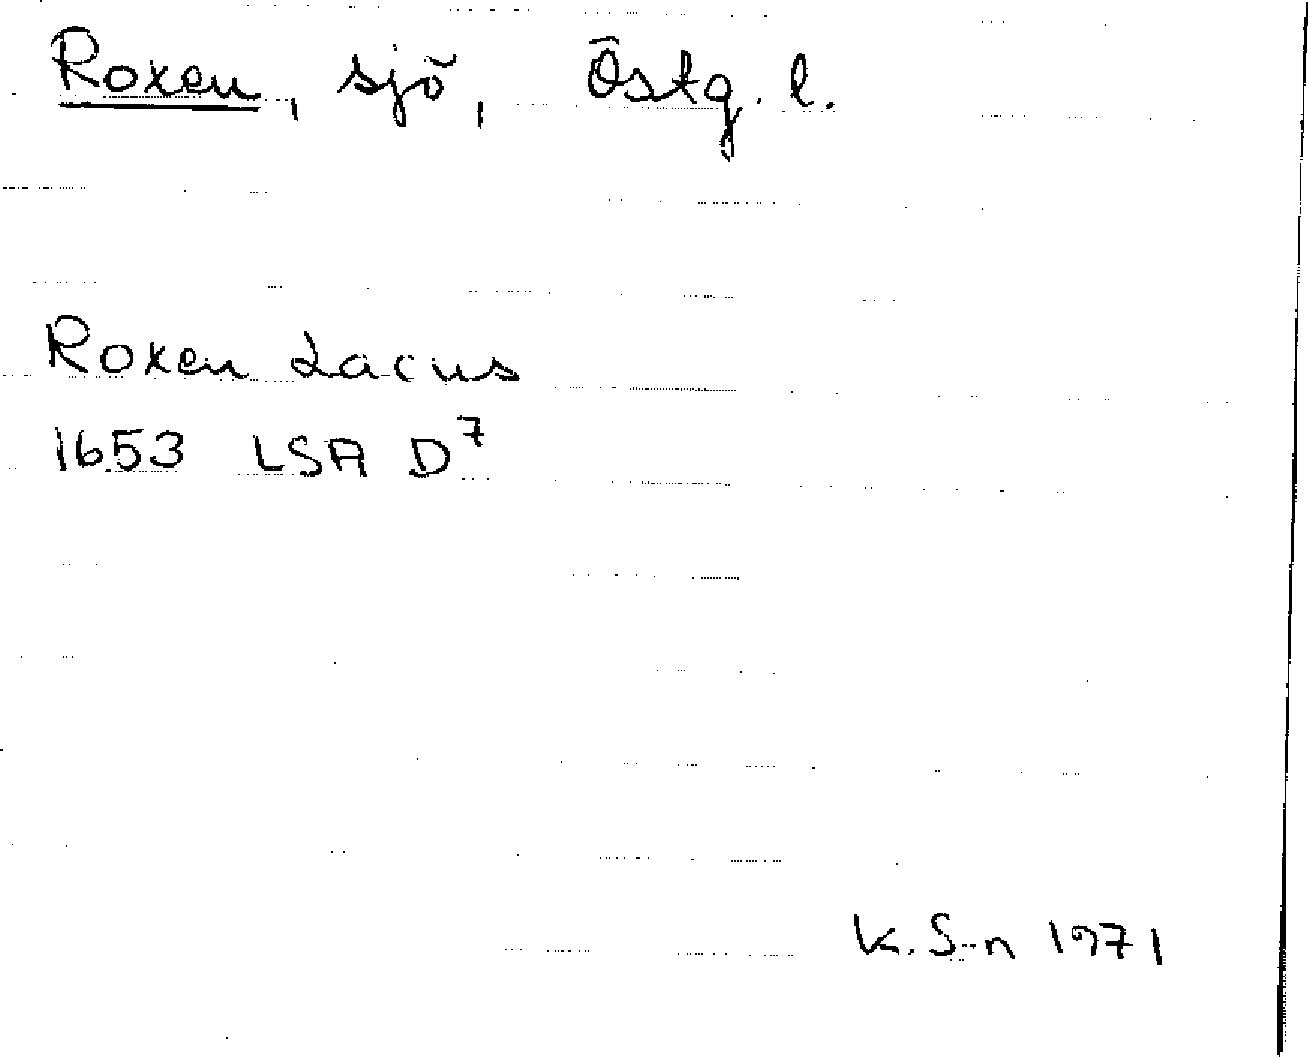 Roxen, sjö, Östg. l.
Roxen Lacus
1653 LSA D⁷
K. S-n 1971